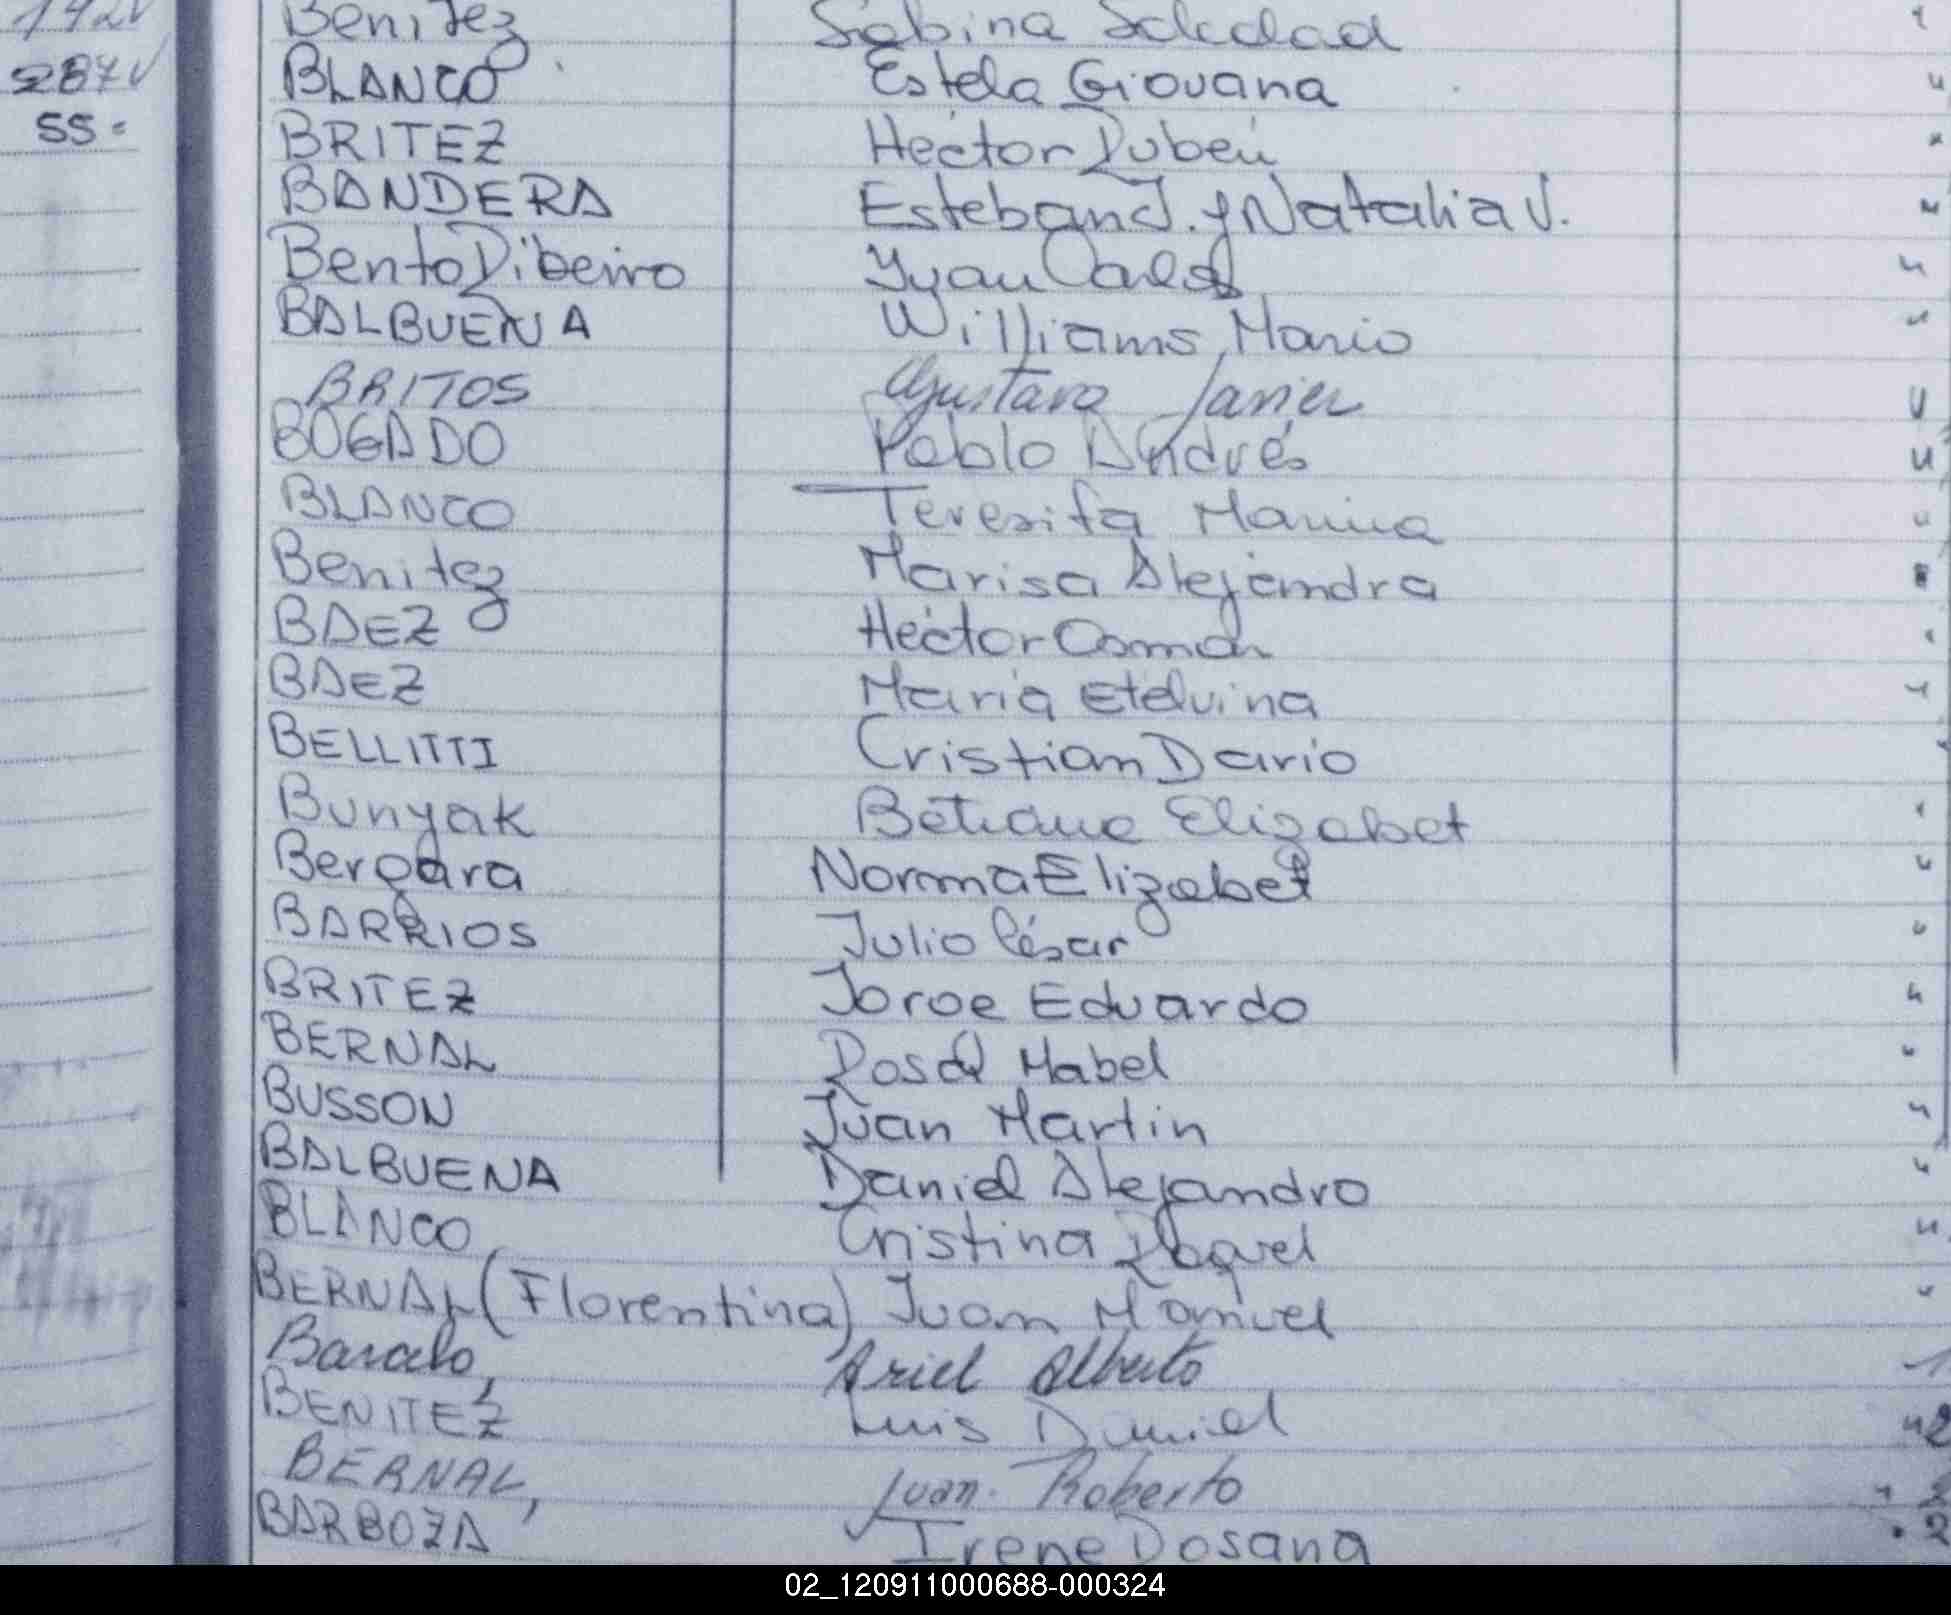 142v
287v
55 "
Benitez Sabina Soledad "
BLANCO Estela Giovana "
BRITEZ Héctor Rubén "
BANDERA Esteban J. y Natalia V. "
Bento Ribeiro Juan Carlos "
BALBUENA Williams Mario "
BRITOS Gustavo Javier "
BOGADO Pablo Andrés "
BLANCO Teresita Marina "
Benitez Marisa Alejandra "
BAEZ Héctor Osmar "
BAEZ Maria Etelvina "
BELLITTI Cristian Dario
Bunyak Betiana Elizabet "
Bergara Norma Elizabet "
BARRIOS Julio César "
BRITEZ Jorge Eduardo "
BERNAL Rosa Mabel "
BUSSON Juan Martin "
BALBUENA Daniel Alejandro "
BLANCO Cristina Raquel "
BERNAL (Florentina) Juan Manuel "
Ariel Alberto
BENITEZ Luis Daniel " 2
BERNAL, Juan Roberto " 2
BARBOZA Irene Rosana " 2
02_120911000688-000324